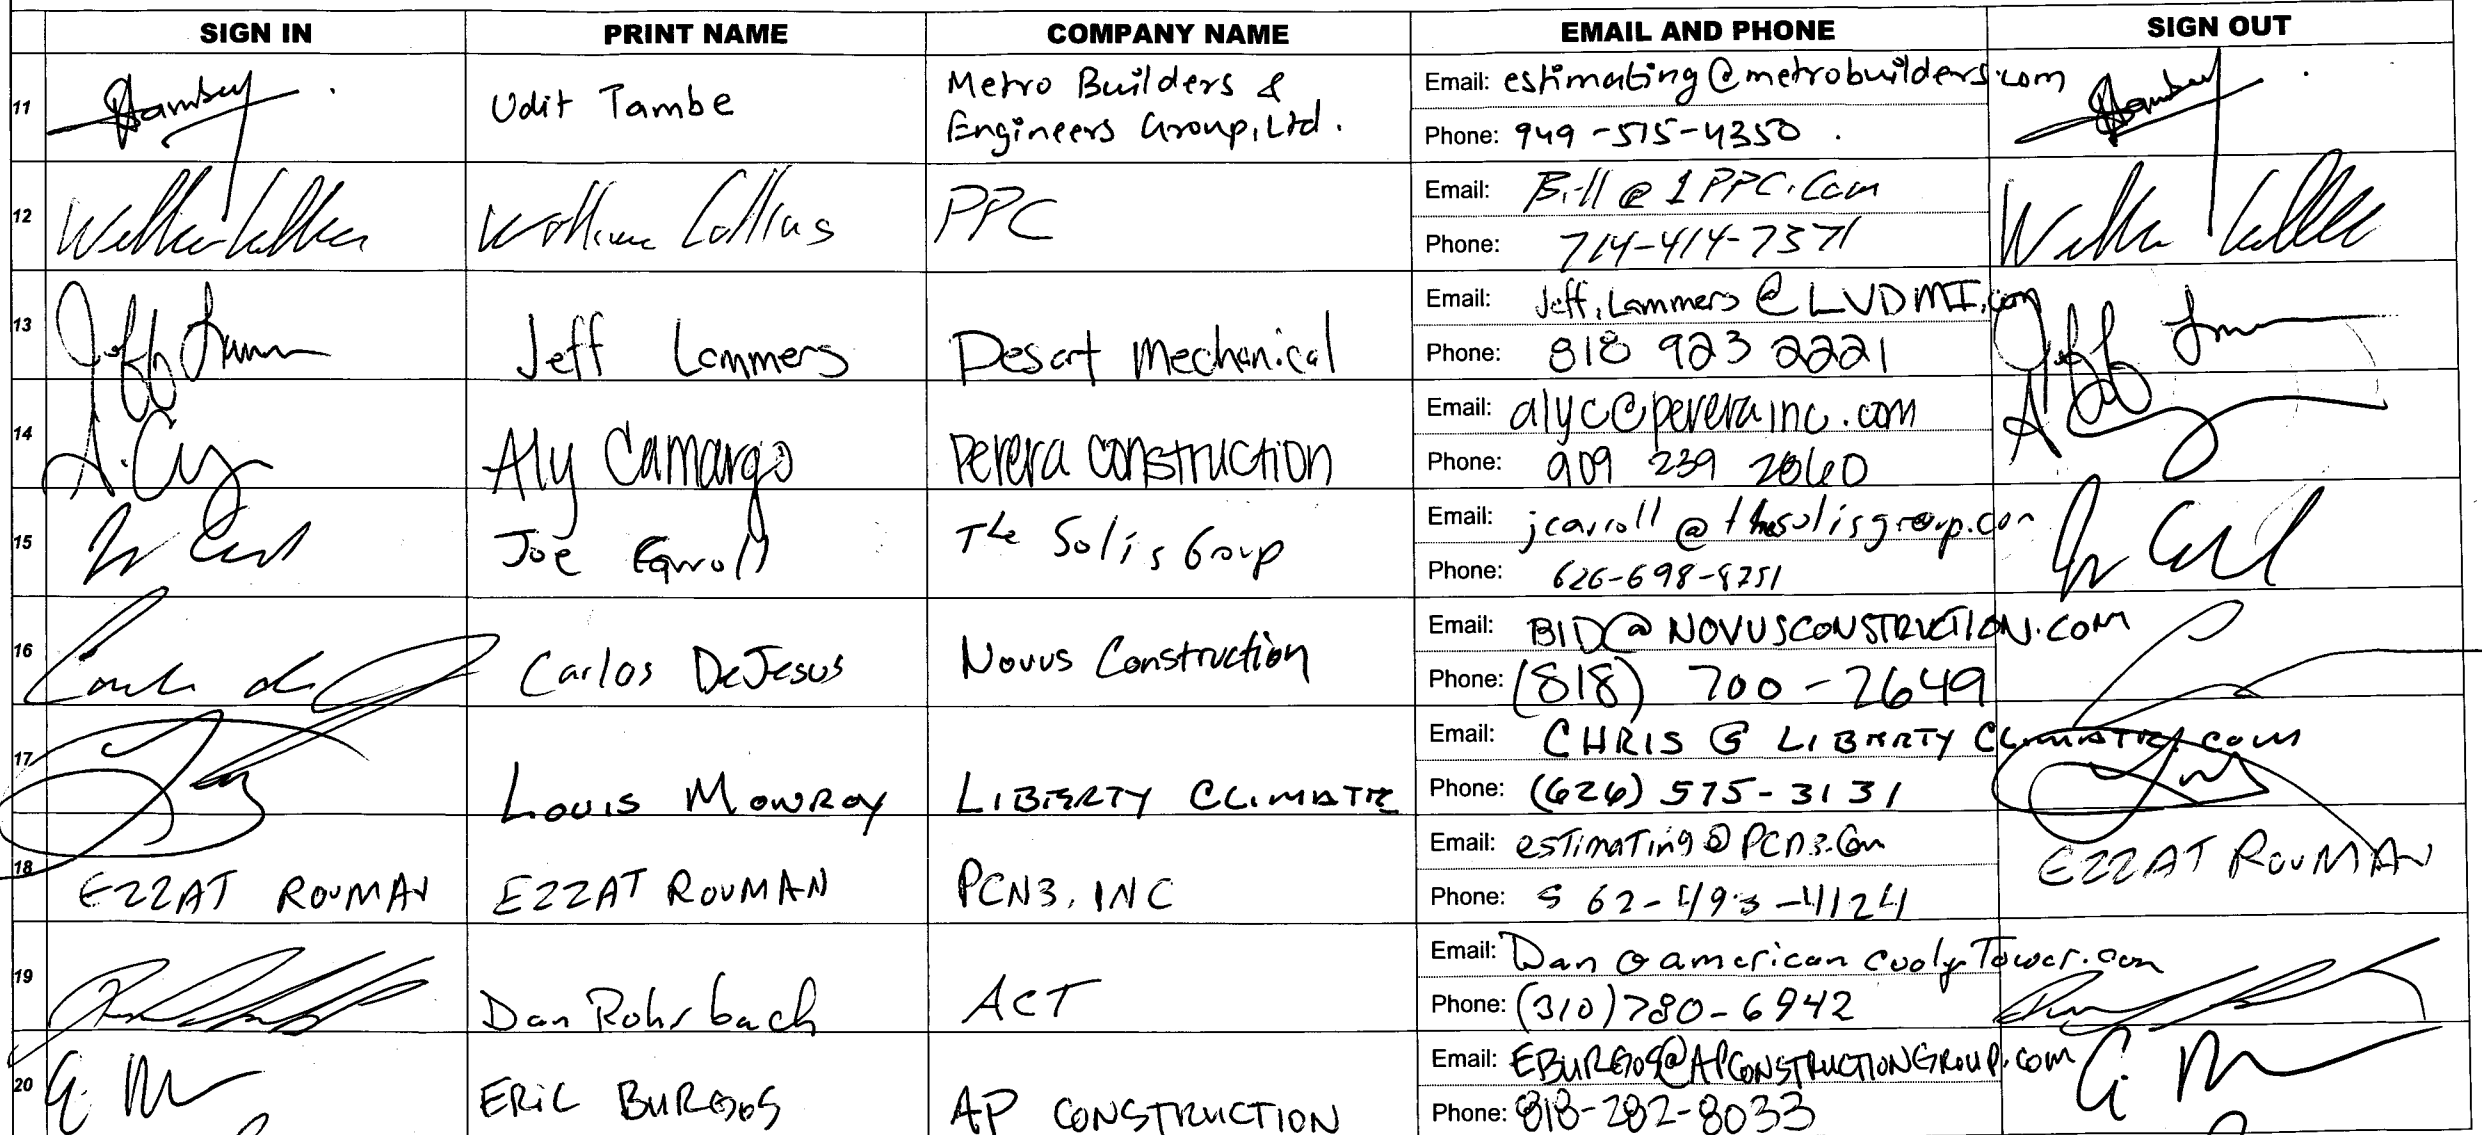 SIGN IN PRINT NAME COMPANY NAME EMAIL AND PHONE SIGN OUT
11 Udit Tambe Metro Builders & Email: estimating@metrobuilders.com
Engineers Group, Ltd. Phone: 949-515-4350
12 William Collins PPC Email: Bill@1PPC.Com
Phone: 714-414-7371
13 Jeff Lammers Jeff Lammers Desart Mechanical Email: Jeff.Lammers@LVDMI.com
Phone: 818 923 2221
14 Aly Camargo Perera Construction Email: alyc@pererainc.com
Phone: 909 239 2060
15 Joe Carroll The Solis Group Email: jcarroll@thesolisgroup.com
Phone: 626-698-8751
16 Carlos DeJesus Novus Construction Email: BID@NOVUSCONSTRUCTION.COM
Phone: (818) 700-2649
17 Louis Monroy LIBERTY CLIMATE Email: CHRIS@LIBERTYCLIMATE.com
Phone: (626) 575-3131
18 EZZAT ROUMAN EZZAT ROUMAN PCN3, INC Email: estimating@PCN3.Com EZZAT ROUMAN
Phone: 562-493-4124
19 Dan Rohrbach ACT Email:
Phone: (310) 780-6942
20 ERIC BURGOS AP CONSTRUCTION Email: EBURGOS@APCONSTRUCTIONGROUP.com
Phone: 818-282-8033